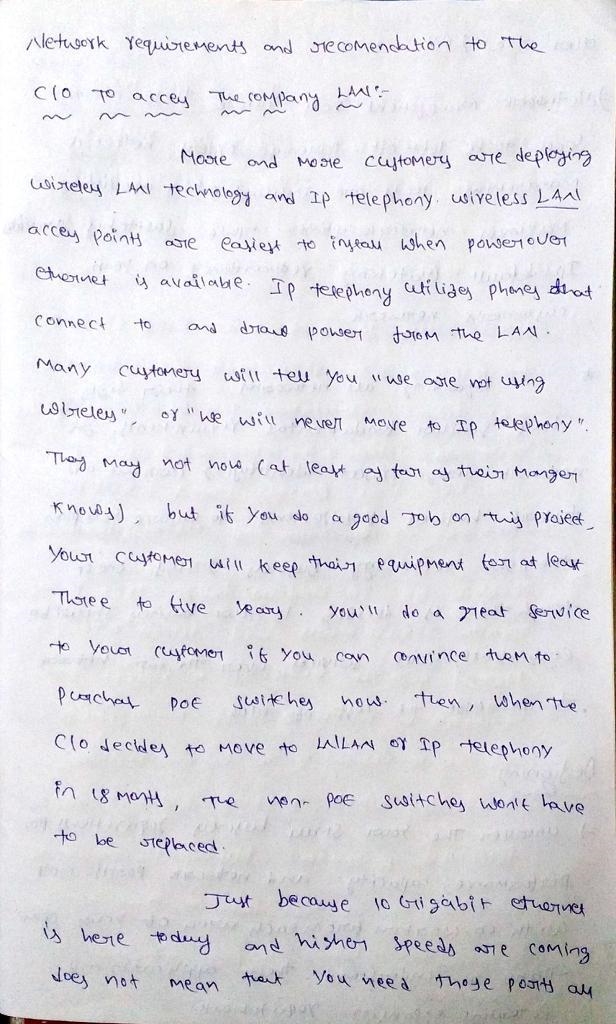 Network requirements and recomendation to the
CIO To acces The company LAN:-
More and more customers are deploying
wireles LAN technology and Ip telephony. wireless LAN
acces points are easiest to install when powerover
ethernet is available. Ip telephony utilizes phones that
connect to and draws power from the LAN.
Many customers will tell you "we are not using
wireles", or "we will never move to Ip telephony".
They may not now (at least as far as their manger
knows), but if you do a good job on this project,
your customer will keep their equipment for at least
Three to five years. you'll do a great service
to your customer if you can convince them to
purchas POE switches now. then, when the
CIO decides to move to WLAN or Ip telephony
in 18 months, the non-POE switches won't have
to be replaced.
Just because 10 Gigabit ethernet
is here today and higher speeds are coming
does not mean that you need those ports all